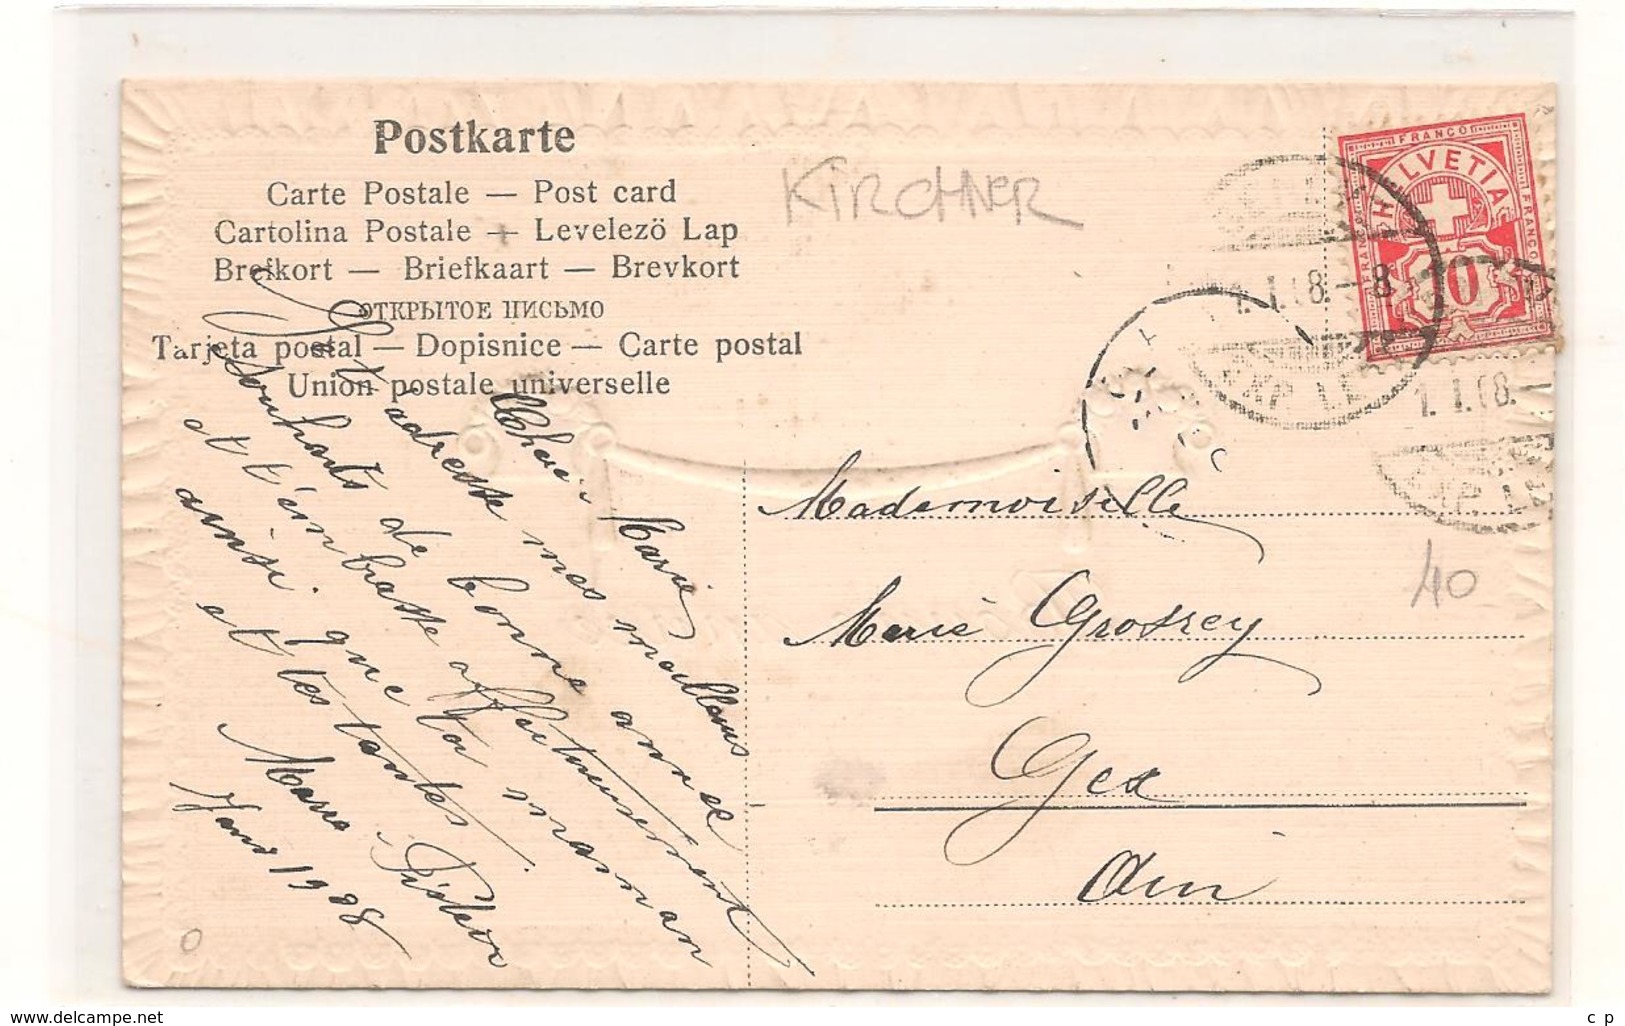 Postkarte
Carte Postale — Post card
Cartolina Postale — Levelezö Lap
Brefkort — Briefkaart — Brevkort
ОТКРЫТОЕ ПИСЬМО
Tarjeta postal — Dopisnice — Carte postal
Union postale universelle
KIRCHNER
FRANCO
HELVETIA
FRANCO
FRANCO
10
1.I.08.-8
EXP. LE
1.I.08.
EXP. LE
Chère Marie
Je t'adresse mes meilleurs
souhaits de bonne année
et t'embrasse affectueusement
ainsi que ta maman
et tes tantes.
1908
Mademoiselle
Marie Grossrey
Gex
Ain
40
0
www.delcampe.net
c p